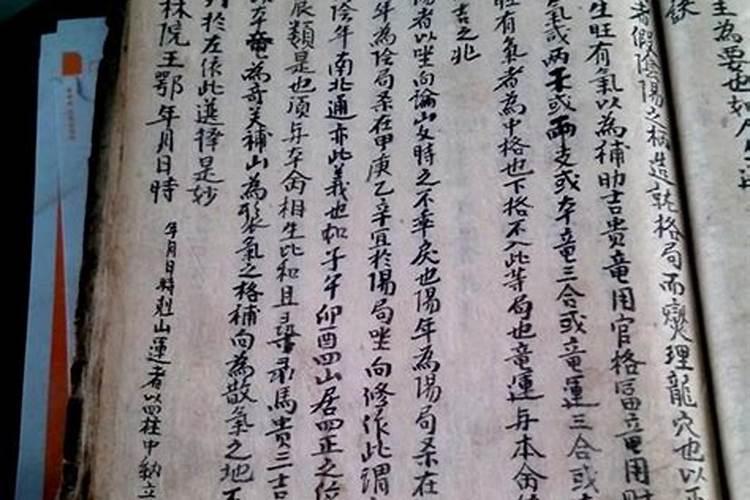 主為要也如人生
訣
者假陰陽之柄造就格局而爕理龍穴也以
生旺有氣以為補助吉貴竜用官格冨竜用財
氣或兩干或兩支或本竜三合或竜運三合或
旺有氣者為中格也下格不入此等局也竜運与本侖
吉之兆
陽者以坐向論山女時之不乖戾也陽年為陽局系在
年為陰局系在甲庚乙辛宜於陽局坐向修作此謂
陰年南北通亦此義也如子午卯酉四山居四正之位
辰類是也須与本侖相生比和且尋祿馬貴三吉
本竜為奇美補山為聚氣之格補向為散氣之地
於左依此選擇是妙
林院王鄂年月日時
年月日時剋山運者以四柱中納